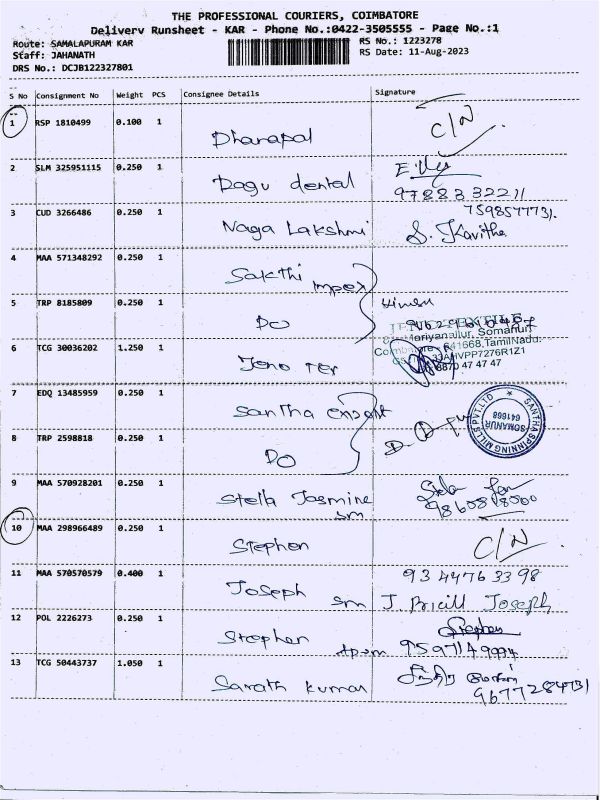 THE PROFESSIONAL COURIERS, COIMBATORE
Delivery Runsheet - KAR - Phone No.:0422-3505555 - Page No.:1
Route: SAMALAPURAM KAR RS No.: 1223278
Staff: JAHANATH RS Date: 11-Aug-2023
DRS No.: DCJB122327801
S No Consignment No Weight PCS Consignee Details Signature
1 RSP 1810499 0.100 1 Dhanapal C/N
2 SLM 325951115 0.250 1 Dagu dental
9788332211
3 CUD 3266486 0.250 1 Naga Lakshmi S. Kavitha
7598577731.
4 MAA 571348292 0.250 1 Sakthi impex
5 TRP 8185809 0.250 1 DO
Mariyanallur, Somanur
641668, TamilNadu.
33AHVPP7276R1Z1
6 TCG 30036202 1.250 1 Jeno Tex 8870 47 47 47
7 EDQ 13485959 0.250 1 Santha export
SANTHA SPINNING MILLS PVT.LTD
SOMANUR
641668
8 TRP 2598818 0.250 1 DO
9 MAA 570928201 0.250 1 Stella Jasmine
sm
10 MAA 298966489 0.250 1 Stephen C/N
11 MAA 570570579 0.400 1 Joseph sm
9344763398
J. Bricill Joseph
12 POL 2226273 0.250 1 Stephen Stephen
13 TCG 50443737 1.050 1 Sarath kumar
9677284731